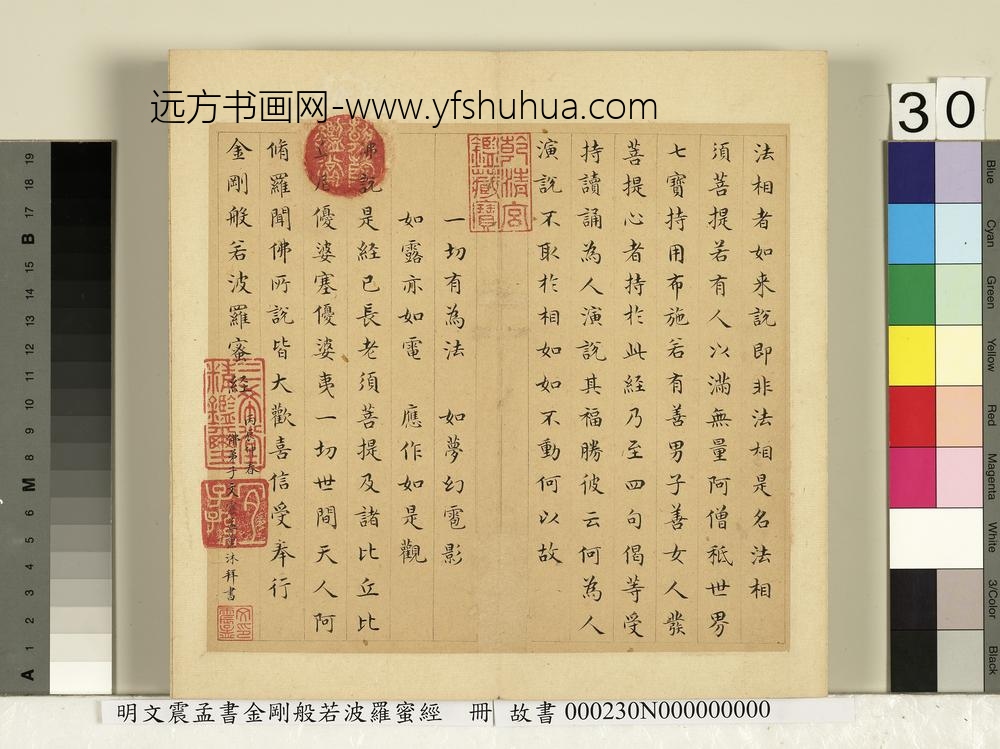 远方书画网-www.yfshuhua.com
30
法相者如来說即非法相是名法相
須菩提若有人以滿無量阿僧秖世界
七寶持用布施若有善男子善女人發
菩提心者持於此經乃至四句偈等受
持讀誦為人演說其福勝彼云何為人
演說不取於相如如不動何以故
乾清宮鑑藏寶
一切有為法 如夢幻雹影
如露亦如電 應作如是觀
佛說是経已長老須菩提及諸比丘比
丘尼優婆塞優婆夷一切世間天人阿
乾隆鑑賞
脩羅聞佛所說皆大歡喜信受奉行
金剛般若波羅蜜経
春
弟子文震孟薰沐拜書
三希堂精鑑璽
宜子孫
明文震孟書金剛般若波羅蜜經 冊 故書 000230N000000000
A 1 2 3 4 5 6 M 8 9 10 11 12 13 14 15 B 17 18 19
Blue
Cyan
Green
Yellow
Red
Magenta
White
3/Color
Black